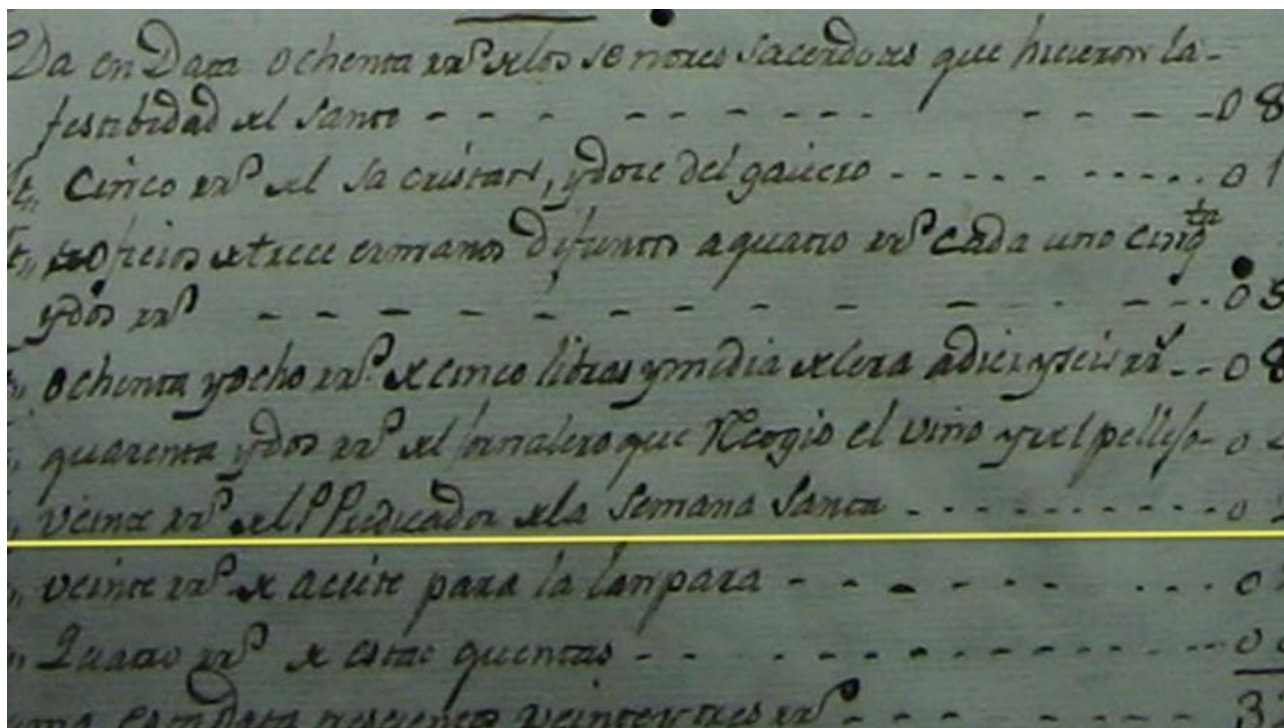 Da en Data ochenta rrs. de los señores sacerdotes que hicieron la
festibidad del santo - - - - - - - - - - - 08
It. Cinco rrs. del sacristan, y doce del gaitero - - - - - - - - - 01
It. oficios de trece ermanos difuntos a quatro rrs. cada uno cinqta
y dos rrs. - - - - - - - - - - - - 05
ochenta y ocho rrs. de cinco libras y media de cera a diez y seis rs. - - 08
quarenta y dos rrs. del jornalero que Recogio el vino y del pellejo - 0
veinte rrs. del P Predicador de la Semana Santa - - - - - - - - - 0
veinte rrs. de aceite para la lanpara - - - - - - - - - 0
Quatro rrs. de estas quentas - - - - - - - - - - - 00
esta Data trescientos veinte y tres rrs. - - - - - - 3